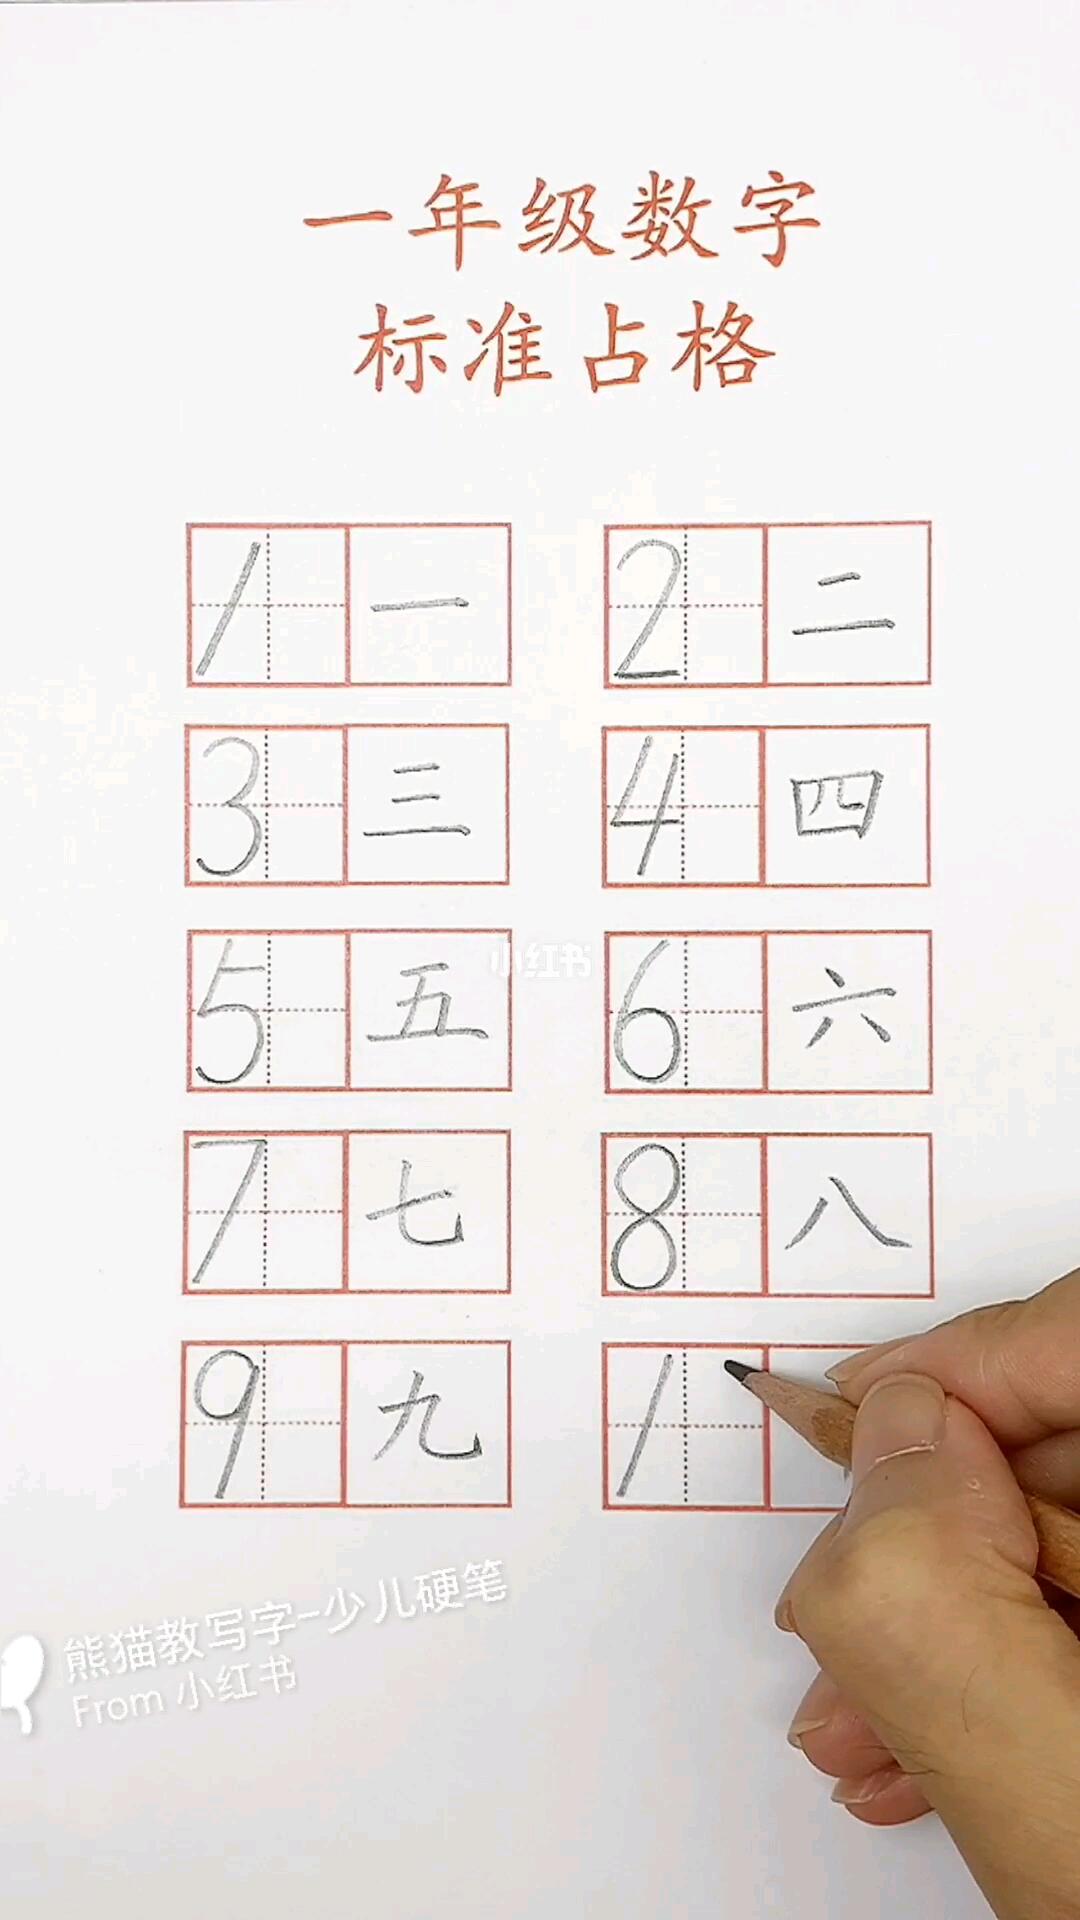 一年级数字
标准占格
1 一 2 二
3 三 4 四
5 五 6 六
小红书
7 七 8 八
9 九 1
熊猫教写字-少儿硬笔
From 小红书